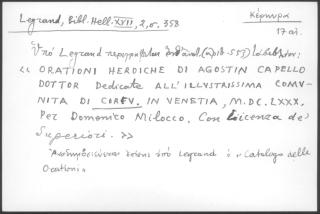 Legrand, Bibl. Hell. XVII, 2, σ. 358
Κέρκυρα
17 αἰ.
Ὑπὸ Legrand περιγράφεται (ἀριθ. 557)
« ORATIONI HEROICHE DI AGOSTIN CAPELLO
DOTTOR Dedicate ALL'ILLUSTRISSIMA COMV-
NITA DI CORFV. IN VENETIA, M.DC.LXXX.
Per Domenico Milocco. Con Licenza de'
Superiori. »
ἐπίσης ὑπὸ Legrand ὁ «Catalogo delle
Orationi»